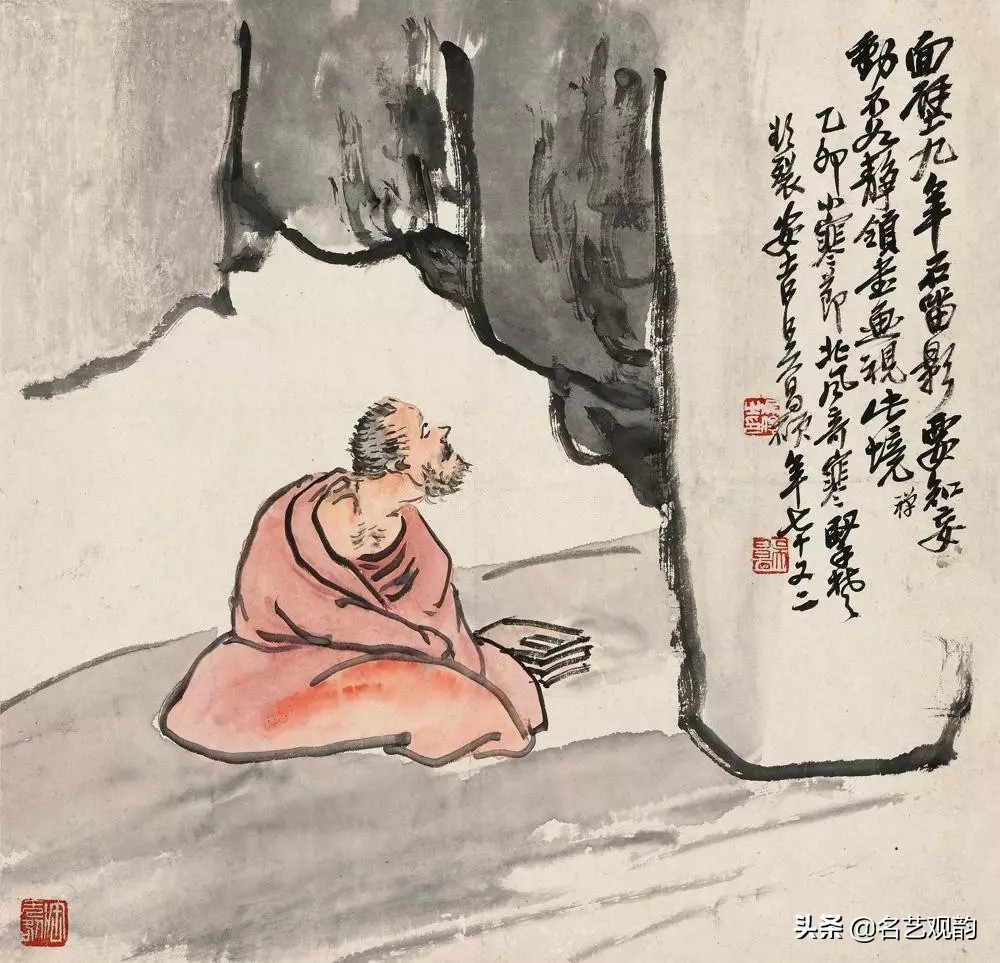 面壁九年石留影要知妄
動不如靜領画視此境
禅
乙卯小寒節北风奇寒硯幾
欲裂安吉吴昌碩年七十又二
头条 @名艺观韵